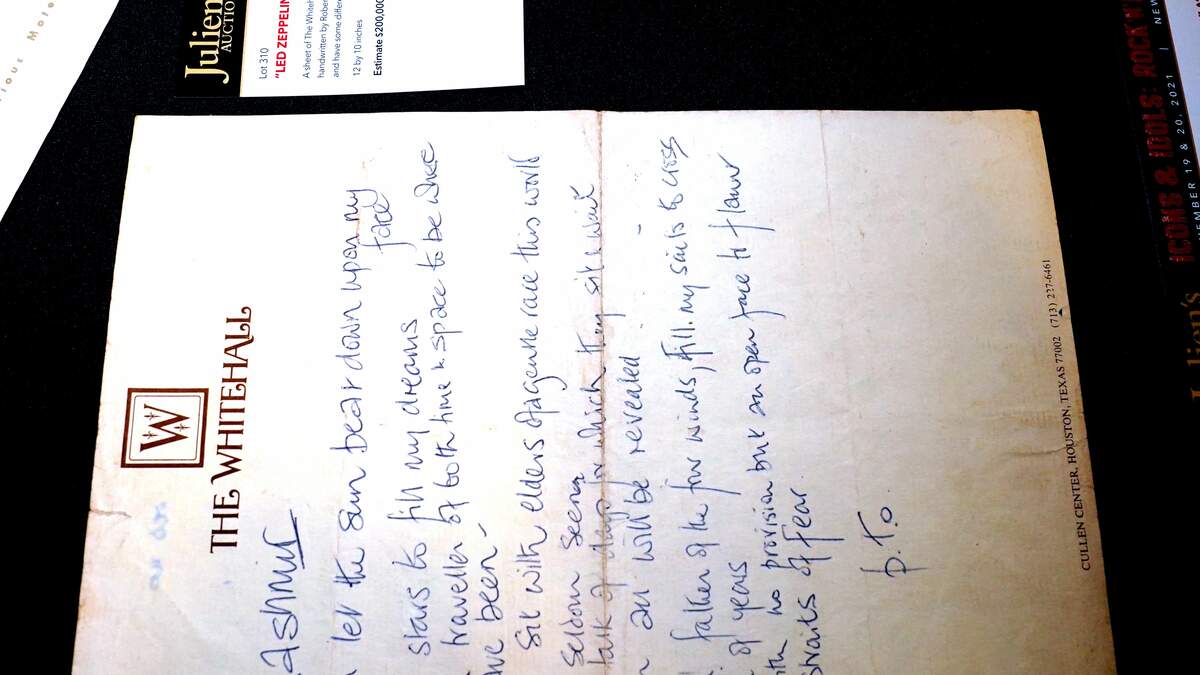 IOUS Moto
Julien
AUCTION
Lot 310
"LED ZEPPELIN
A sheet of The Whiteh
handwritten by Rober
and have some differe
12 by 10 inches
Estimate $200,000
ICONS & IDOLS: ROCK 'N'
EMBER 19 & 20, 2021 | NEW
Julien's
W
THE WHITEHALL
ASHMIR
let the sun beat down upon my
face
stars to fill my dreams
traveller of both time & space to be where
ve been -
Sit with elders of a gentle race this world
Seldom Seen
talk of days for which they sit & wait
all will be revealed . -
father of the four winds, fill my sails to cross
of years
no provision but an open face
straits of fear.
P.T.O.
CULLEN CENTER, HOUSTON, TEXAS 77002 (713) 227-6461